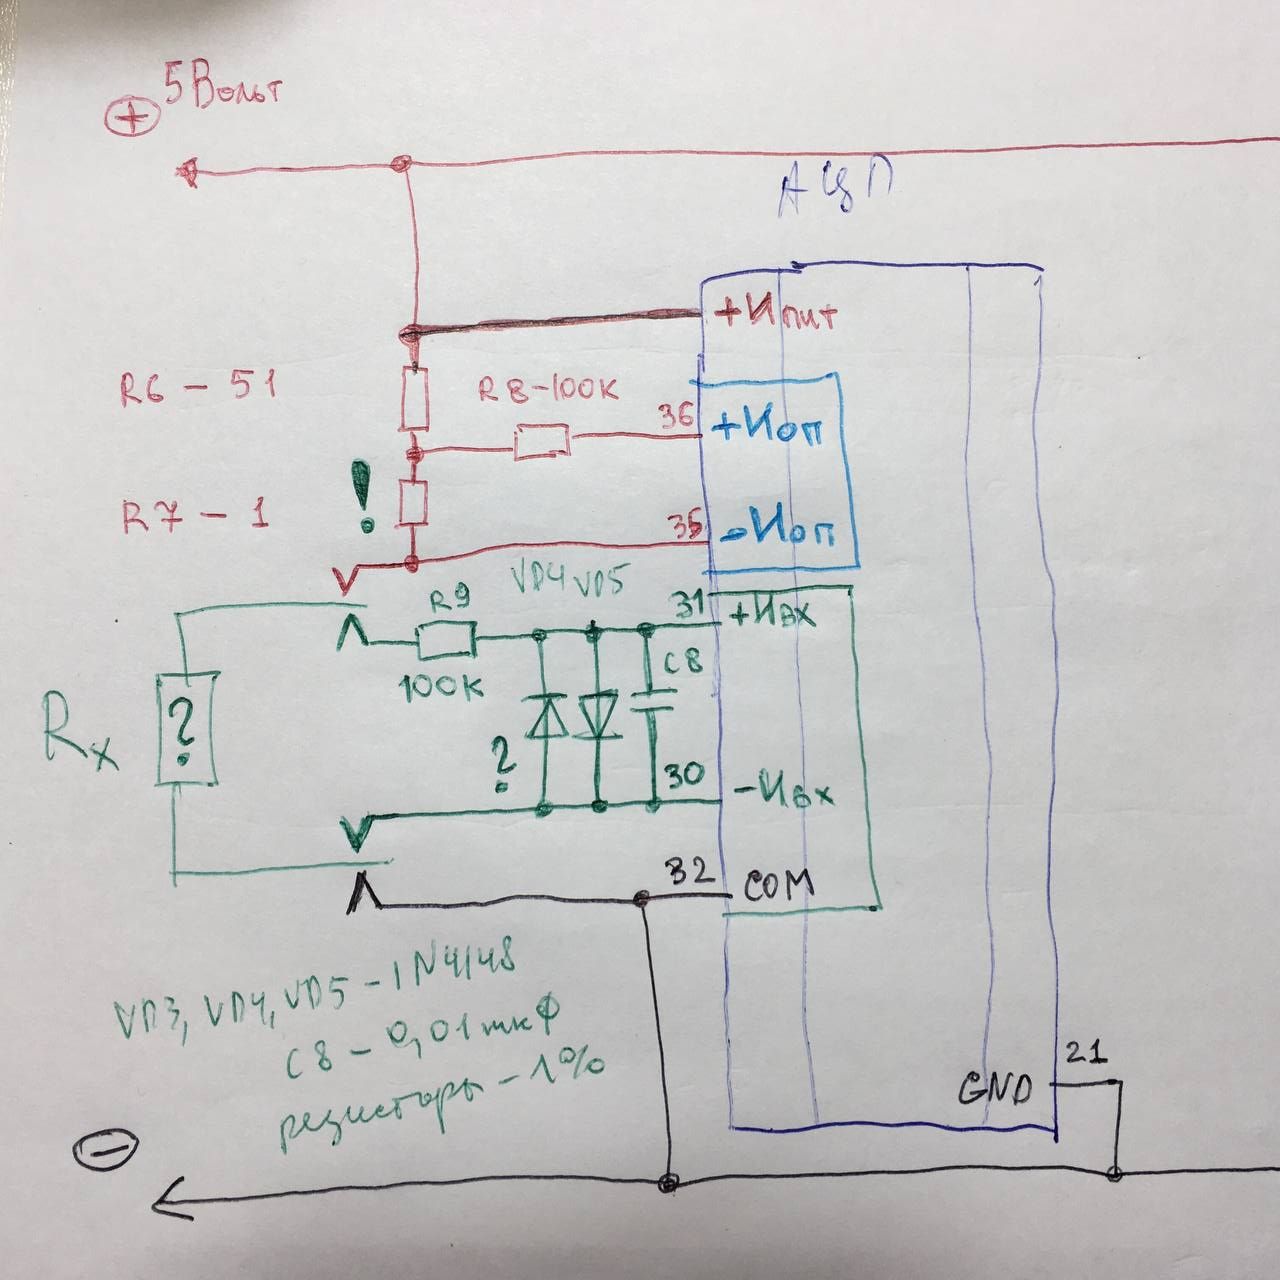 + 5 Вольт
АЦП
+Ипит
R6 - 51
R8-100К
36
+Иоп
R7 - 1
!
35
-Иоп
VD4 VD5
R9
31
+Ивх
100К
C8
Rx
?
?
30
-Ивх
32
COM
VD3, VD4, VD5 - 1N4148
C8 - 0,01 мкФ
резисторы - 1%
21
GND
-